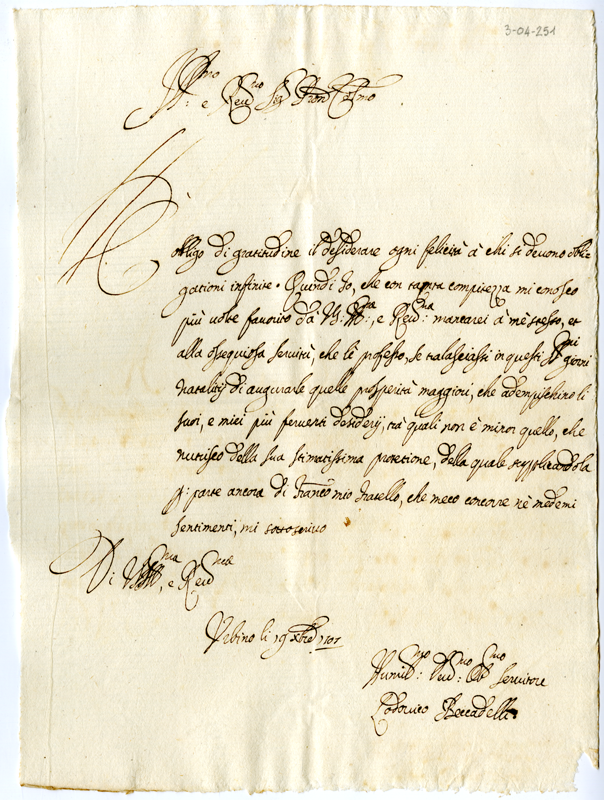 3-04-251
Ill:mo e Rev:mo Sig Pron Col:mo
È
obligo di gratitudine il desiderare ogni felicità à chi si devono obli
gationi infinite. Quindi Io, che con tanta compitezza mi conosco
più volte favorito dà V:S: Ill:ma, e Rev:ma mancarei à mè stesso, et
alla ossequiosa servitù, che lè professo, se tralasciassi in questi S:mi giorni
Natalitij di augurarle quelle prosperità maggiori, che adempischino li
suoi, e miei più ferventi desiderij, trà quali non è minor quello, che
nutrisco della sua stimatissima protetione, della quale supplicandola
p: parte ancora di Franc:o mio fratello, che meco concorre nè medemi
sentimenti, mi sottoscrivo
Di V.S. Ill:ma, e Rev:ma
Urbino li 19 Xbre 1707
Humil:mo Dev:mo Ob:mo Servitore
Lodovico Beccadelli